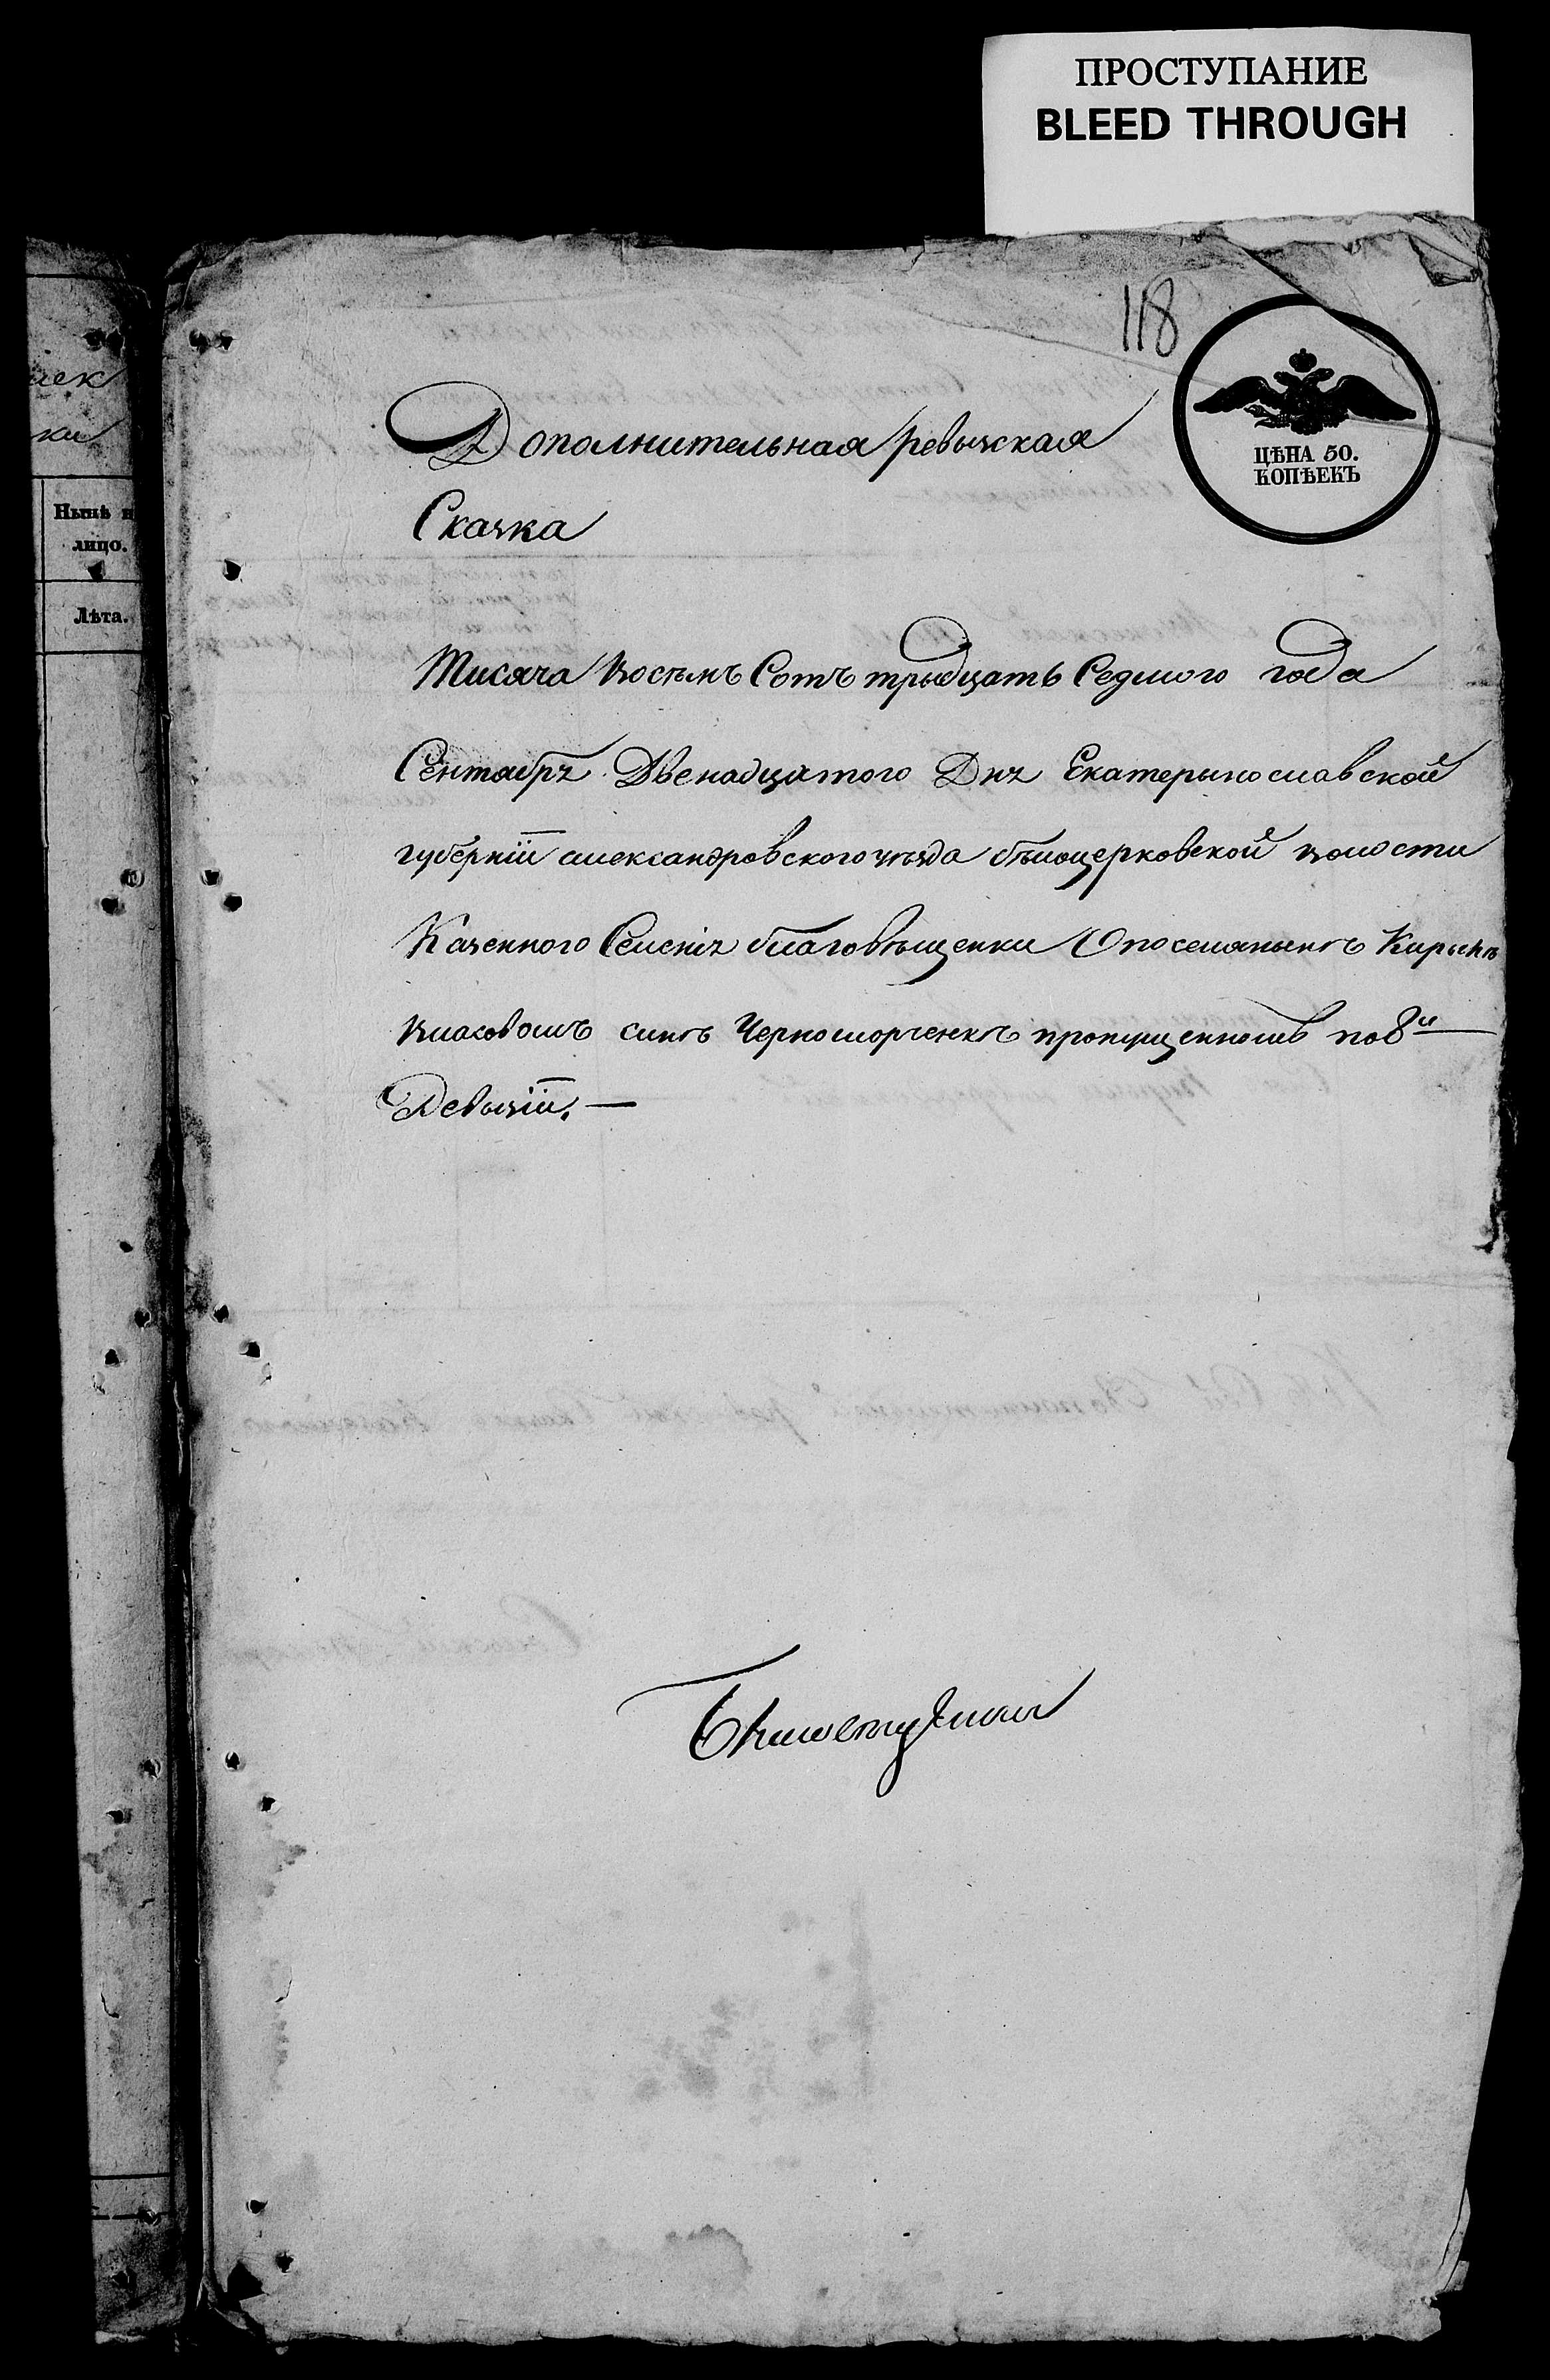 ПРОСТУПАНИЕ
BLEED THROUGH
118
ЦѢНА 50.
КОПѢЕКЪ
Дополнительная ревызская
Сказка
Тисяча Восемъ Сотъ трыдцать Седмого года
Сентабрѧ Двенадцатого Днѧ Екатерынославской
губерніи александровского уѣзда бѣлоцерковской волости
Казенного Селеніѧ благовѣщенки О поселянынѣ
Власовомъ синѣ Черноморченкѣ пропущенномъ по 8й
Ревызіи. —
лек
ки
Нынѣ н
лицо.
Лѣта.